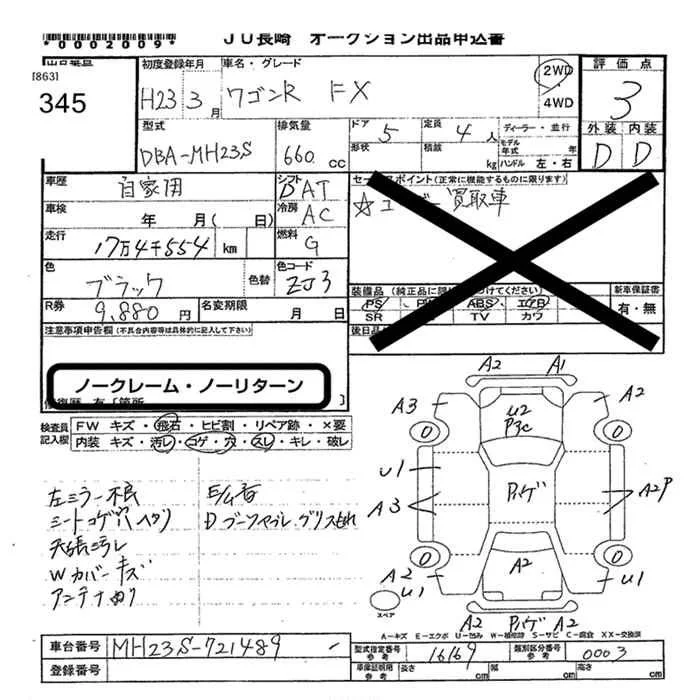 *0002009*
JU長崎 オークション出品申込書
[863]
345
初度登録年月
H23 3 月
車名・グレード
ワゴンR FX
2WD
4WD
評価点
3
外装 内装
D D
型式
DBA-MH23S
排気量
660 cc
ドア 5
定員 4 人
ディーラー・並行
形状
積載 kg
モデル年式 年
ハンドル 左・右
車歴
自家用
シフト
DAT
セールスポイント(正常に機能するものに限ります)
買取車
車検
年 月( 日)
冷房
AC
走行
17万4千554 km
燃料
G
色
ブラック
色替
色コード
ZJ3
装備品
PS ABS エアB
SR TV カワ
新車保証書
有・無
R券
9,880 円
名変期限
月 日
注意事項申告欄(不具合内容等は具体的に記入して下さい)
後日品
ノークレーム・ノーリターン
検査員記入欄
FW キズ・飛石・ヒビ割・リペア跡・×要
内装 キズ・汚レ・コゲ・穴・スレ・キレ・破レ
左ミラー不良
シートコゲ穴
天張汚レ
Wカバーキズ
アンテナ
D ブーツヤブレ グリスもれ
A2 A1
A3 A2
U2
P3c
U1
A3
ハゲ
A2P
A2
U1
A2
U1
A2 ハゲ A2
スペア
A-キズ E-エクボ U-凹み W-補修跡 S-サビ C-腐食 XX-交換済
車台番号
MH23S-721489
登録番号
型式指定番号 参考
16169
類別区分番号 参考
0003
車庫証明用 参考
長さ cm
幅 cm
高さ cm